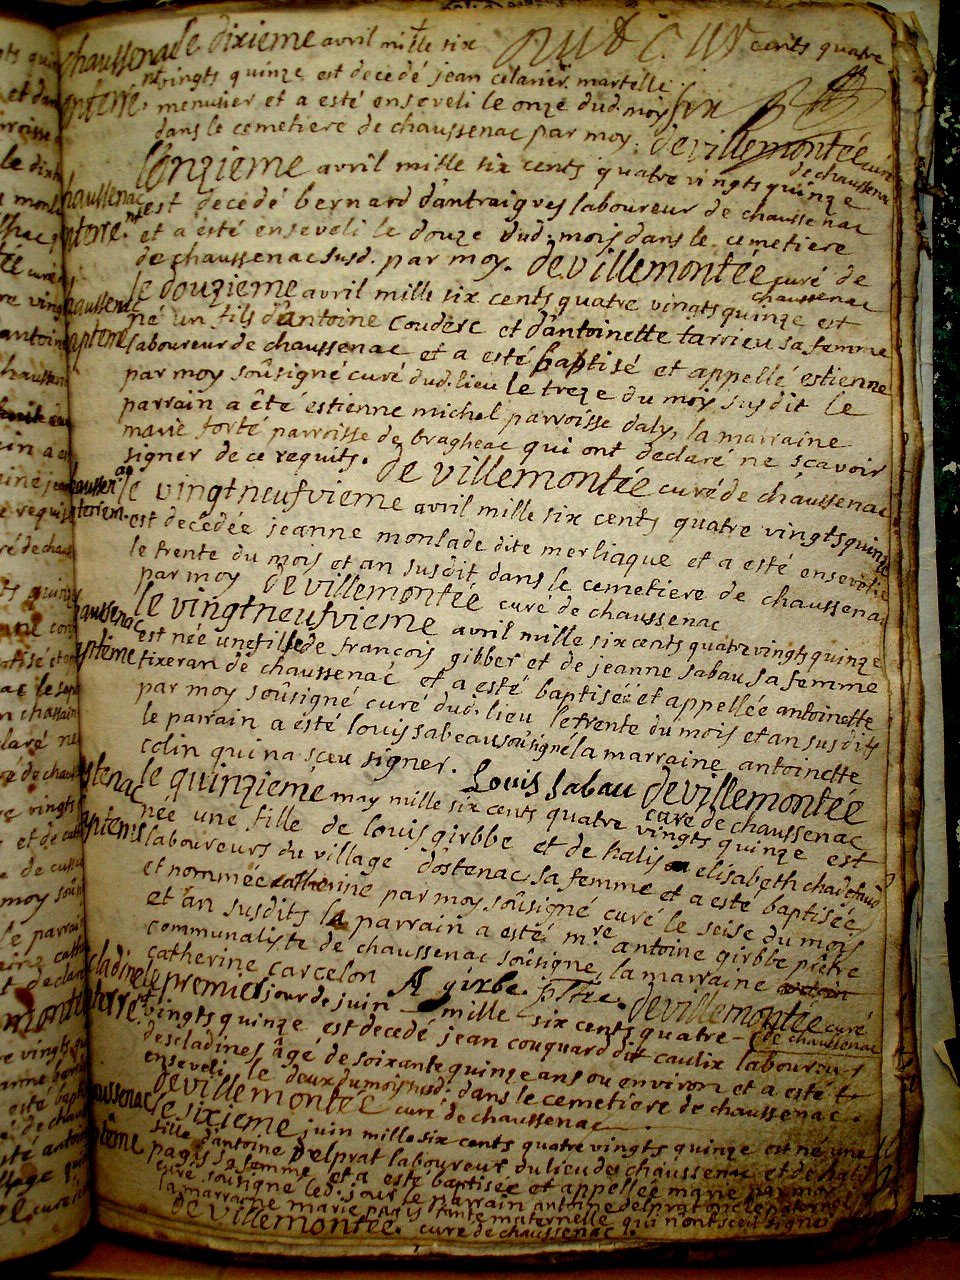 chaussenac le dixieme avril mille six cents quatre
enterre.nt vingts quinze est decedé jean celanier martelle
menusier et a esté enseveli le onze dud. mois
dans le cemetiere de chaussenac par moy. devillemontée curé
de chaussenac
chaussenac L'onzieme avril mille six cents quatre vingts quinze
enterre.nt est decedé bernard d'antraigves laboureur de chaussenac
et a esté enseveli le douze dud. mois dans le cemetiere
de chaussenac susd. par moy. devillemontée curé de
chaussenac
chaussenac le douzieme avril mille six cents quatre vingts quinze est
bapteme né un fils d'antoine couderc et d'antoinette tarrieu sa femme
laboureur de chaussenac et a esté baptisé et appellé estienne
par moy soûsigné curé dud. lieu le treze du mois susdit le
parrain a êté estienne michel parroisse daly, la marraine
marie forte parroisse de bragheac qui ont declaré ne scavoir
signer de ce requits. de villemontée curé de chaussenac
le vingtneufvieme avril mille six cents quatre vingts quinze
est decedée jeanne monlade dite merliaque et a esté ensevelie
le trente du mois et an susdit dans le cemetiere de chaussenac
par moy devillemontée curé de chaussenac
chaussenac le vingtneufvieme avril mille six cents quatre vingts quinze
bapteme est née une fille de francois gibber et de jeanne sabau sa femme
tixeran de chaussenac et a esté baptisée et appellée antoinette
par moy soûsigné curé dud. lieu le trente du mois et an susdits
le parrain a ésté louis sabeau soûsigné la marraine antoinette
colin qui na sceu signer. Louis sabau devillemontée
curé de chaussenac
ostenac le quinzieme may mille six cents quatre vingts quinze est
bapteme née une fille de louis girbbe et de elisabeth
laboureurs du village dostenac sa femme et a esté baptisée
et nommée catherine par moy soûsigné curé le seise du mois
et an susdits le parrain a esté m.re antoine girbbe prêtre
communaliste de chaussenac soûsigne, la marraine
catherine carcelon A girbe. ptre. devillemontée curé
de chaussenac
le premier jour de juin mille six cents quatre
enterre.nt vingts quinze est decedé jean couquard dit caulix laboureur
descladines âgé de soixante quinze ans ou environ et a esté
enseveli le deux du mois susd. dans le cemetiere de chaussenac.
devillemontée curé de chaussenac
chaussenac le sixieme juin mille six cents quatre vingts quinze est né une
bapteme fille d'antoine delprat laboureur du lieu de chaussenac et de
pagis sa femme et a esté baptisée et appellée marie par moy
curé soûsigné led. jour le parrain antoine delprat oncle paternel
la marraine marie pagis tante maternelle qui n'ont sceu signer
de villemontée. curé de chaussenac.